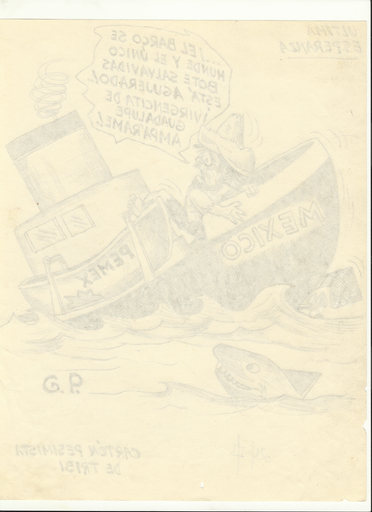 ULTIMA
ESPERANZA
¡EL BARCO SE
HUNDE Y EL ÚNICO
BOTE SALVAVIDAS
ESTÁ AGUJERADO!
¡VIRGENCITA DE
GUADALUPE
AMPARAME!
MEXICO
PEMEX
CARTÓN PESIMISTA
DE TRIBI